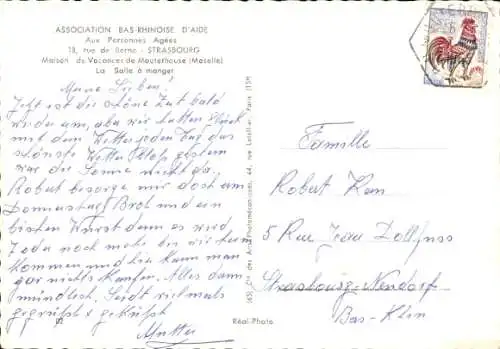 ASSOCIATION BAS-RHINOISE D'AIDE
Aux Personnes Agées
18, rue de Berne - STRASBOURG
Maison de Vacances de Mouterhouse (Moselle)
La Salle à manger
Meine Lieben!
Jetzt ist die schöne Zeit bald
wieder um, aber wir hatten Glück
mit dem Wetter jeden Tag das
schönste Wetter blos gestern
war die Sonne nicht da.
Robert besorge mir doch am
Donnerstag Brot und ein
bischen Wurst denn es wird
noch mehr bis wir heim
kommen und hier kann man
gar nichts kaufen. Alles dann
mündlich. Seid vielmals
gegrüßt & geküßt
Mutter
(65) Cie des Arts Photomécaniques, 44, rue Letellier, Paris (15e)
Réal-Photo
Famille
Robert
5 Rue Jean Dollfuss
Strasbourg-Neudorf
Bas-Rhin